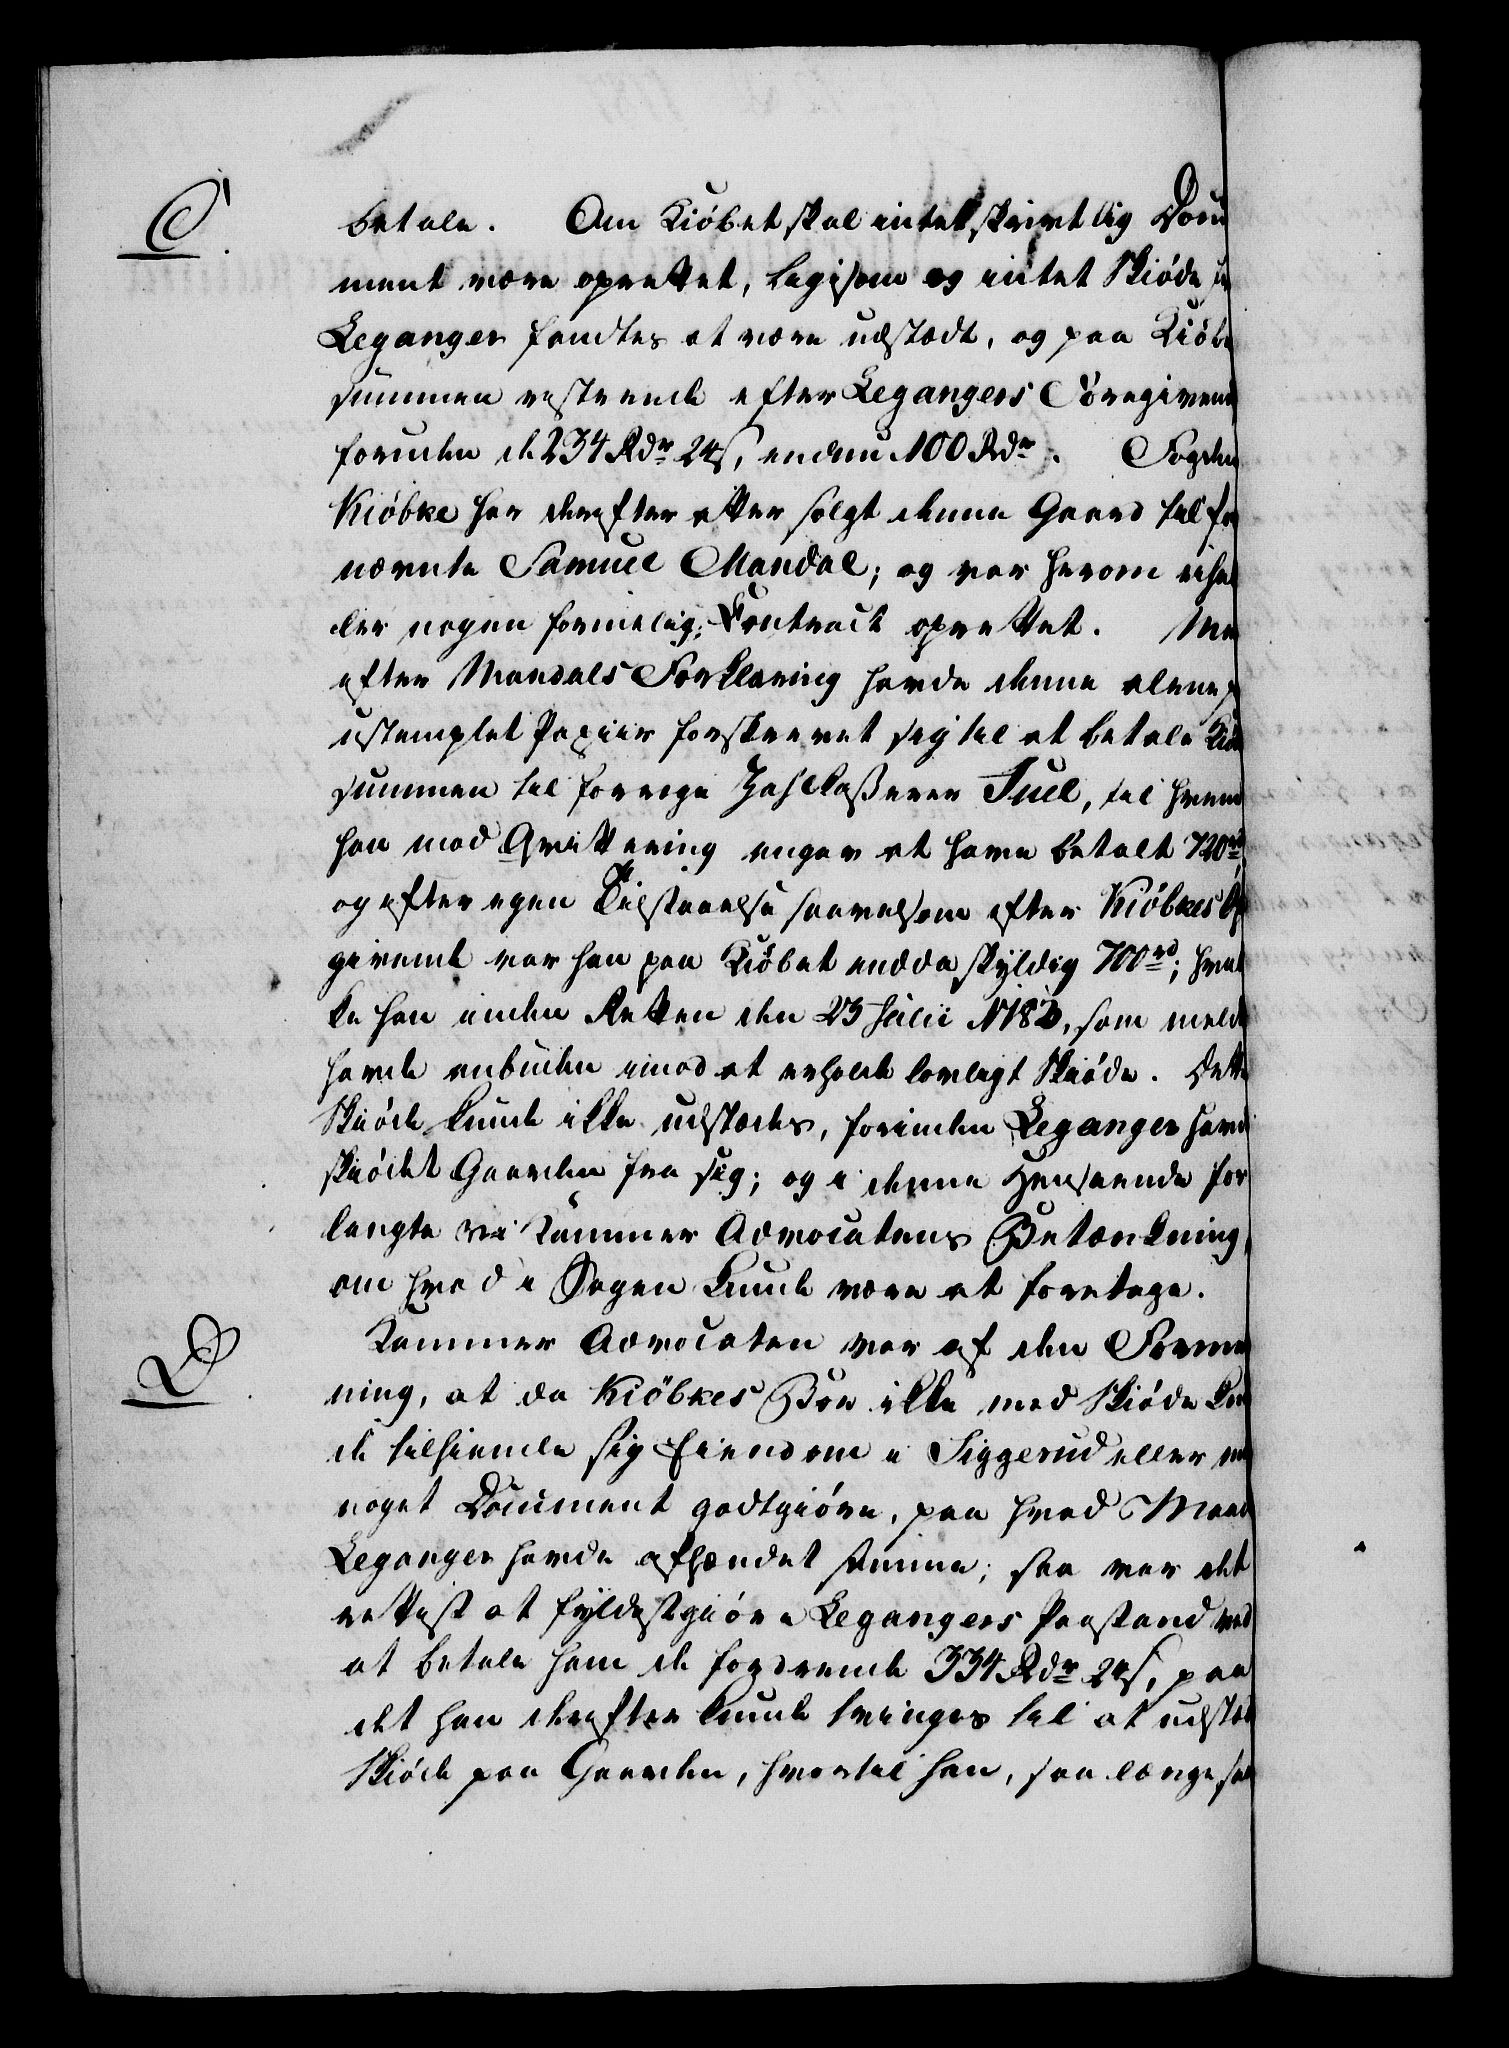 C.
betale. Om Kiöbet skal intet skrivtlig Docu
ment være oprettet, ligesom og intet Skiöde fra
Leganger fandtes at være udstædt, og paa Kiöbe
summen resterede efter Legangers Foregivende,
foruden de 234 Rdr 24 s, endnu 100 Rdr. Fogden
Kiöbke har derefter atter solgt denne Gaard til for
nævnte Samuel Mandal; og var herom ei hel
ler nogen formelig Contract oprettet. Men
efter Mandals Forklaring havde denne alene p
ustemplet Papiir forskrevet sig til at betale Kiöb
summen til forrige Zahlkasserer Juel, til hvem
han mod Qvittering angav at have betalt 720 rd
og efter egen Tilstaaelse saavelsom efter Kiöbkes Op
givende var han paa Kiöbet endda skyldig 700 rd; hvil
ke han inden Retten den 23 Julii 1782, som meldt
havde anbuden imod at erholde lovligt Skiöde. Dette
Skiöde kunde ikke udstædes, forinden Leganger havde
skiödet Gaarden fra sig; og i denne Henseende for
langte vi Kammer Advocatens Betænkning,
om hvad i Sagen kunde være at foretage.
D.
Kammer Advocaten var af den Forme
ning, at da Kiöbkes Boe ikke med Skiöde kun
de tilhiemle sig Eiendom i Siggerud eller med
noget Document godtgiöre, paa hvad Maade
Leganger havde afhændet samme; saa var det
rettest at fyldestgiöre Legangers Paastand ved
at betale ham de fordrende 334 Rdr 24 s, paa
det han derefter kunde tvinges til at udstæde
Skiöde paa Gaarden, hvortil han, saa længe saa